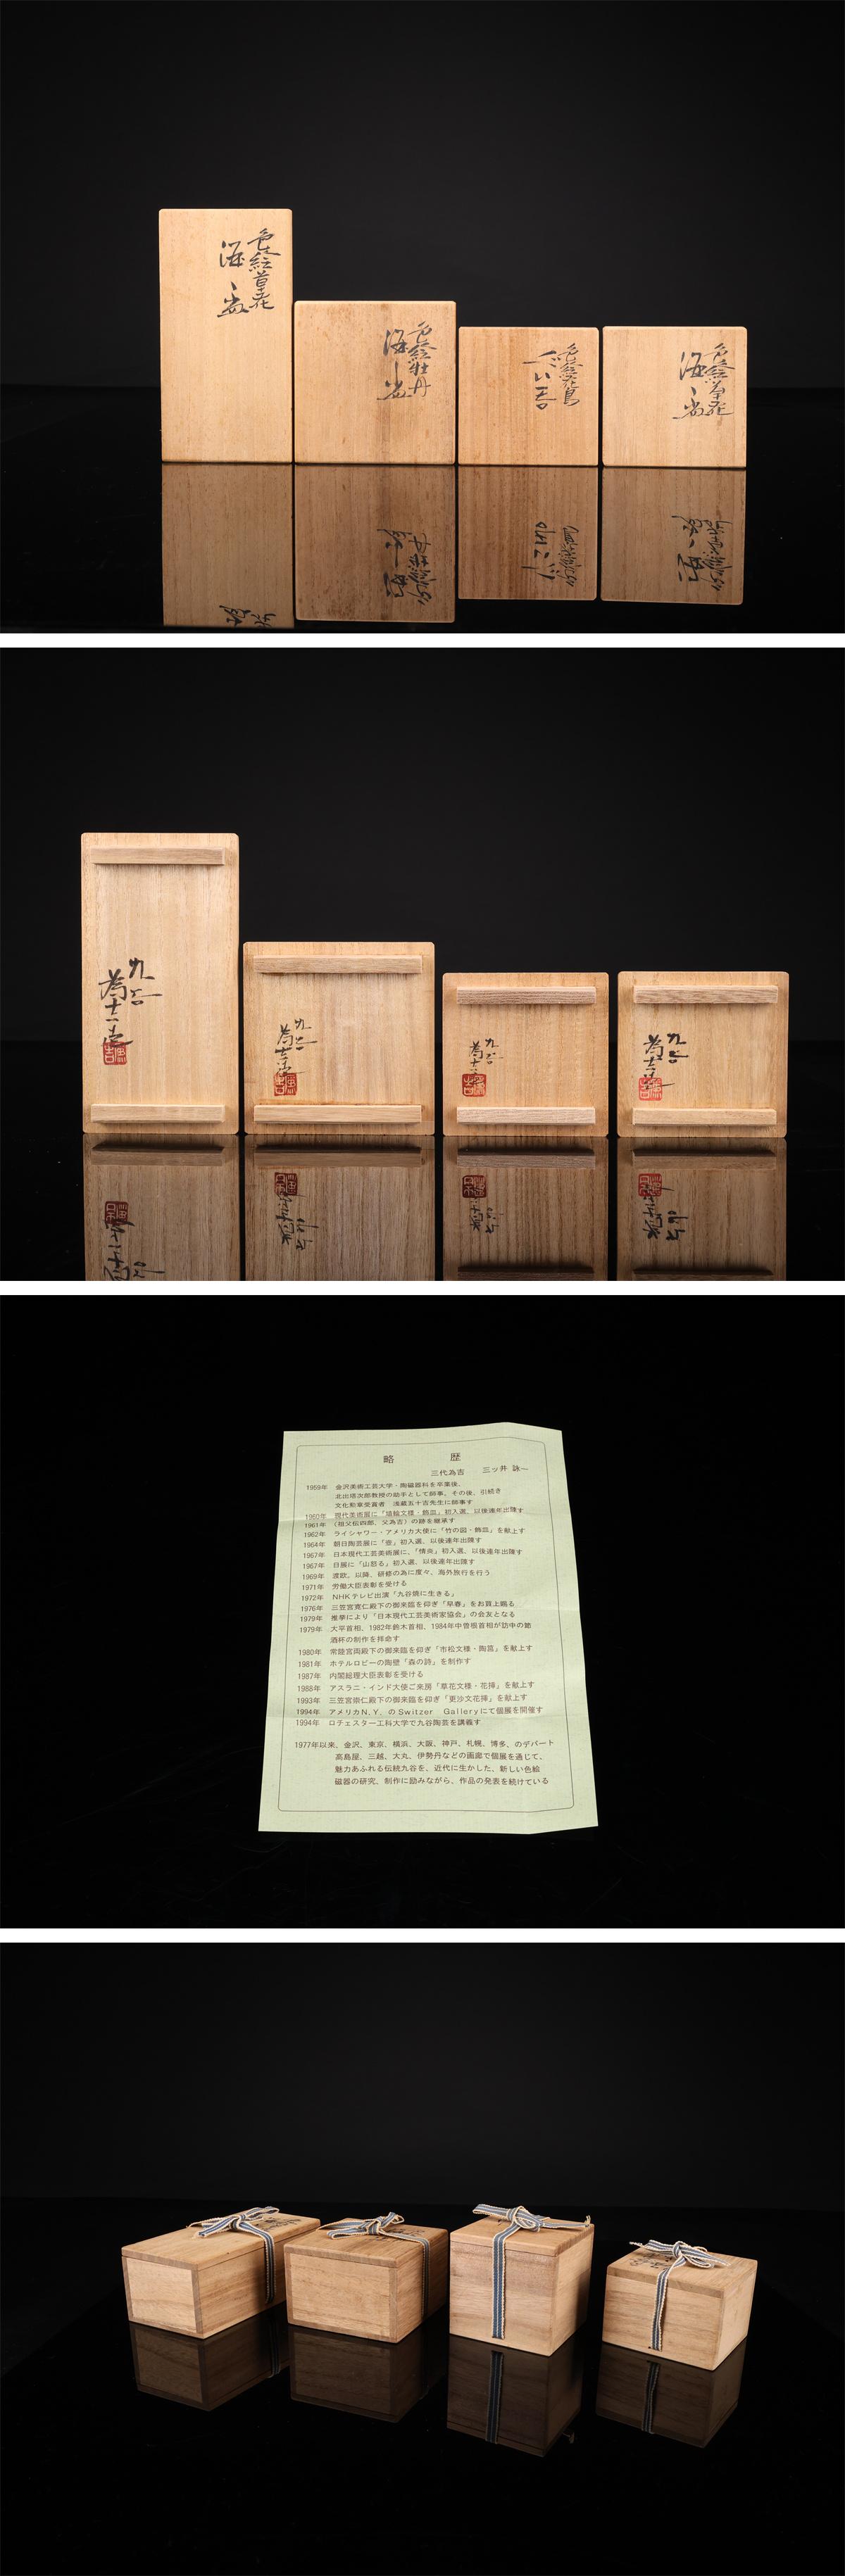 色絵草花
酒盃
色絵牡丹
酒盃
色絵花鳥
ぐい呑
色絵草花
酒盃
九谷
為吉造
九谷
為吉造
九谷
為吉造
九谷
為吉造
略 歴
三代為吉 三ッ井 詠一
1959年 金沢美術工芸大学・陶磁器科を卒業後、
北出塔次郎教授の助手として師事、その後、引続き
文化勲章受賞者 浅蔵五十吉先生に師事す
1960年 現代美術展に「蜻蛉文様・飾皿」初入選、以後連年出陳す
1961年 (祖父伝四郎、父為吉)の跡を継承す
1962年 ライシャワー・アメリカ大使に「竹の図・飾皿」を献上す
1964年 朝日陶芸展に「壺」初入選、以後連年出陳す
1967年 日本現代工芸美術展に、「情炎」初入選、以後連年出陳す
1967年 日展に「山怒る」初入選、以後連年出陳す
1969年 渡欧、以降、研修の為に度々、海外旅行を行う
1971年 労働大臣表彰を受ける
1972年 NHKテレビ出演「九谷焼に生きる」
1976年 三笠宮寛仁殿下の御来臨を仰ぎ「早春」をお買上賜る
1979年 推挙により「日本現代工芸美術家協会」の会友となる
1979年 大平首相、1982年鈴木首相、1984年中曽根首相が訪中の節
酒杯の制作を拝命す
1980年 常陸宮両殿下の御来臨を仰ぎ「市松文様・陶筥」を献上す
1981年 ホテルロビーの陶壁「森の詩」を制作す
1987年 内閣総理大臣表彰を受ける
1988年 アスラニ・インド大使ご来房「草花文様・花挿」を献上す
1993年 三笠宮崇仁殿下の御来臨を仰ぎ「更沙文花挿」を献上す
1994年 アメリカN.Y.のSwitzer Galleryにて個展を開催す
1994年 ロチェスター工科大学で九谷陶芸を講義す
1977年以来、金沢、東京、横浜、大阪、神戸、札幌、博多、のデパート
高島屋、三越、大丸、伊勢丹などの画廊で個展を通じて、
魅力あふれる伝統九谷を、近代に生かした、新しい色絵
磁器の研究、制作に励みながら、作品の発表を続けている